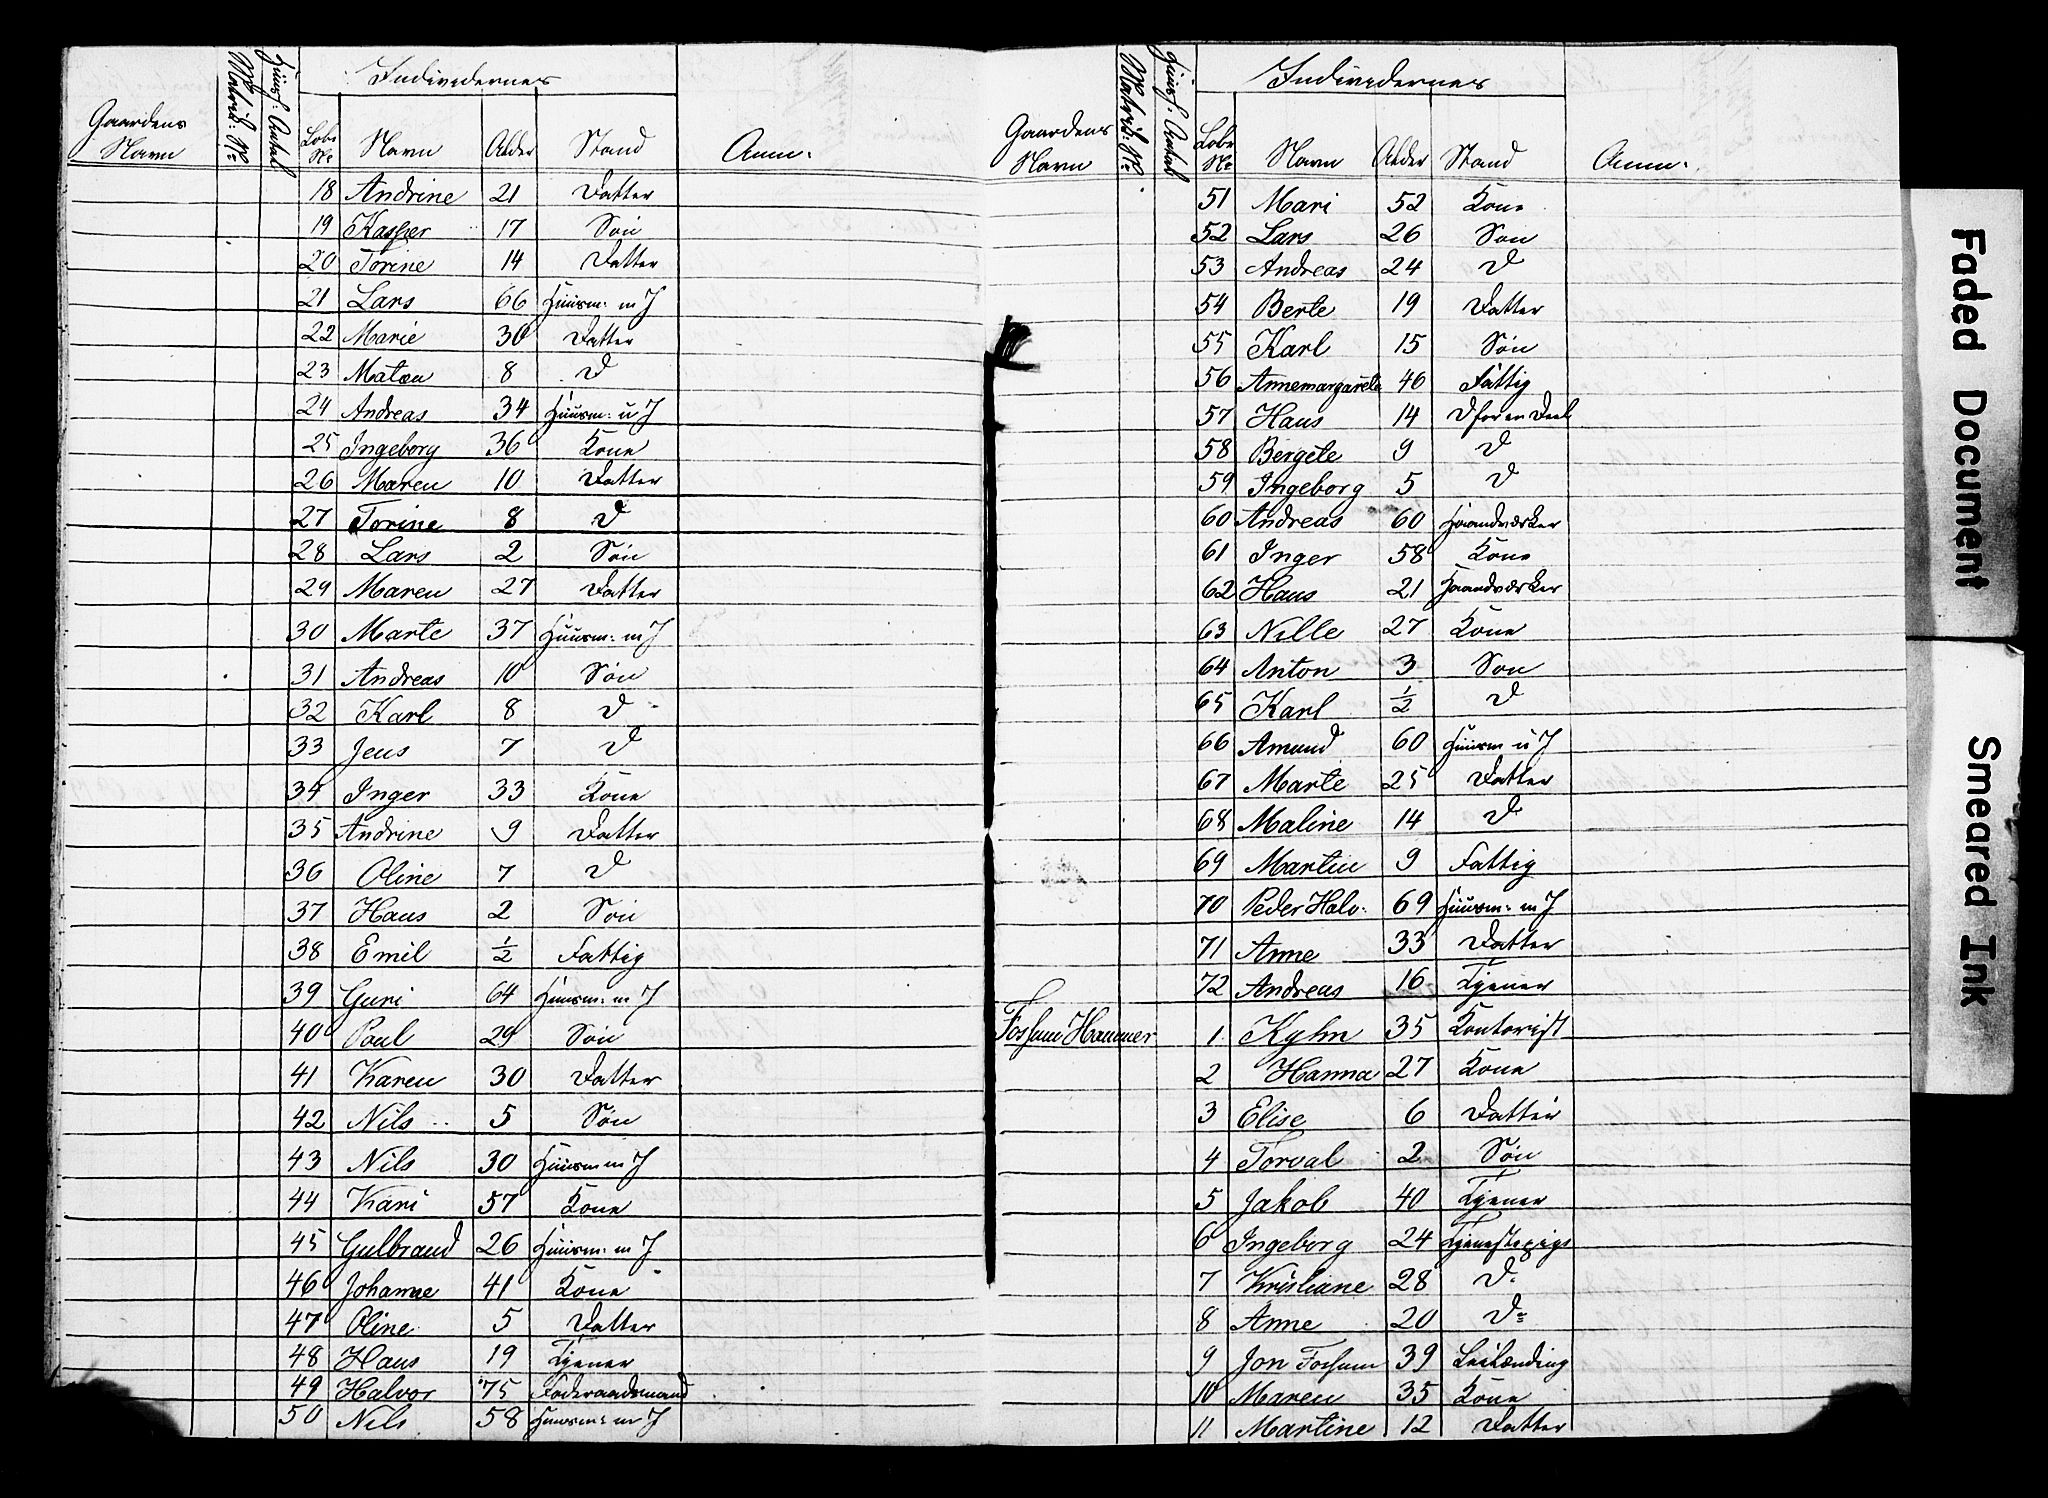 Individernes
Gaardens Navn Matrik: No Huusf: Antal Løbe No Navn Alder Stand Anm:
18 Andrine 21 Datter
19 Kasper 17 Søn
20 Torine 14 Datter
21 Lars 66 Huusm: m J
22 Marie 30 Datter
23 Matæu 8 D
24 Andreas 34 Huusm: u J
25 Ingeborg 36 Kone
26 Maren 10 Datter
27 Torine 8 D
28 Lars 2 Søn
29 Maren 27 Datter
30 Marte 37 Huusm: m J
31 Andreas 10 Søn
32 Karl 8 D
33 Jens 7 D
34 Inger 33 Kone
35 Andrine 9 Datter
36 Oline 7 D
37 Hans 2 Søn
38 Emil 1/2 Fattig
39 Guri 64 Huusm: m J
40 Poul 29 Søn
41 Karen 30 Datter
42 Nils 5 Søn
43 Nils 30 Huusm m J
44 Kari 57 Kone
45 Gulbrand 26 Huusm: m J
46 Johanne 41 Kone
47 Oline 5 Datter
48 Hans 19 Tjener
49 Halvor 75 Føderaadsmand
50 Nils 58 Huusm: m J
Individernes
Gaardens Navn Matrik: No Huusf: Antal Løbe No Navn Alder Stand Anm:
51 Mari 52 Kone
52 Lars 26 Søn
53 Andreas 24 D
54 Berte 19 Datter
55 Karl 15 Søn
56 Annemargarete 46 Fattig
57 Hans 14 D for en Deel
58 Bergete 9 D
59 Ingeborg 5 D
60 Andreas 60 Haandværker
61 Inger 58 Kone
62 Hans 21 Haandværker
63 Nille 27 Kone
64 Anton 3 Søn
65 Karl 1/2 D
66 Amund 60 Huusm u J
67 Marte 25 Datter
68 Maline 14 D
69 Martin 9 Fattig
70 Peder Halv: 69 Huusm: m J
71 Anne 33 Datter
72 Andreas 16 Tjener
Fossum Hammer 1 Kyhn 35 Kontorist
2 Hanna 27 Kone
3 Elise 6 Datter
4 Torval 2 Søn
5 Jakob 40 Tjener
6 Ingeborg 24 Tjenestepige
7 Kristiane 28 D
8 Anne 20 D
9 Jon Fossum 39 Leilænding
10 Maren 35 Kone
11 Martine 12 Datter
Faded Document
Smeared Ink